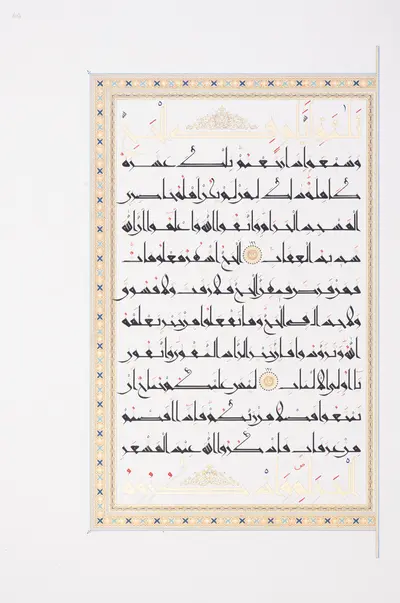 ثلثة ايام في الحج
وسبعة اذا رجعتم تلك عشرة
كاملة ذلك لمن لم يكن اهله حاضري
المسجد الحرام واتقوا الله واعلموا ان الله
شديد العقاب الحج اشهر معلومات
فمن فرض فيهن الحج فلا رفث ولا فسوق
ولا جدال في الحج وما تفعلوا من خير يعلمه
الله وتزودوا فان خير الزاد التقوى واتقون
يا اولي الالباب ليس عليكم جناح ان
تبتغوا فضلا من ربكم فاذا افضتم
من عرفات فاذكروا الله عند المشعر
الحرام واذكروه